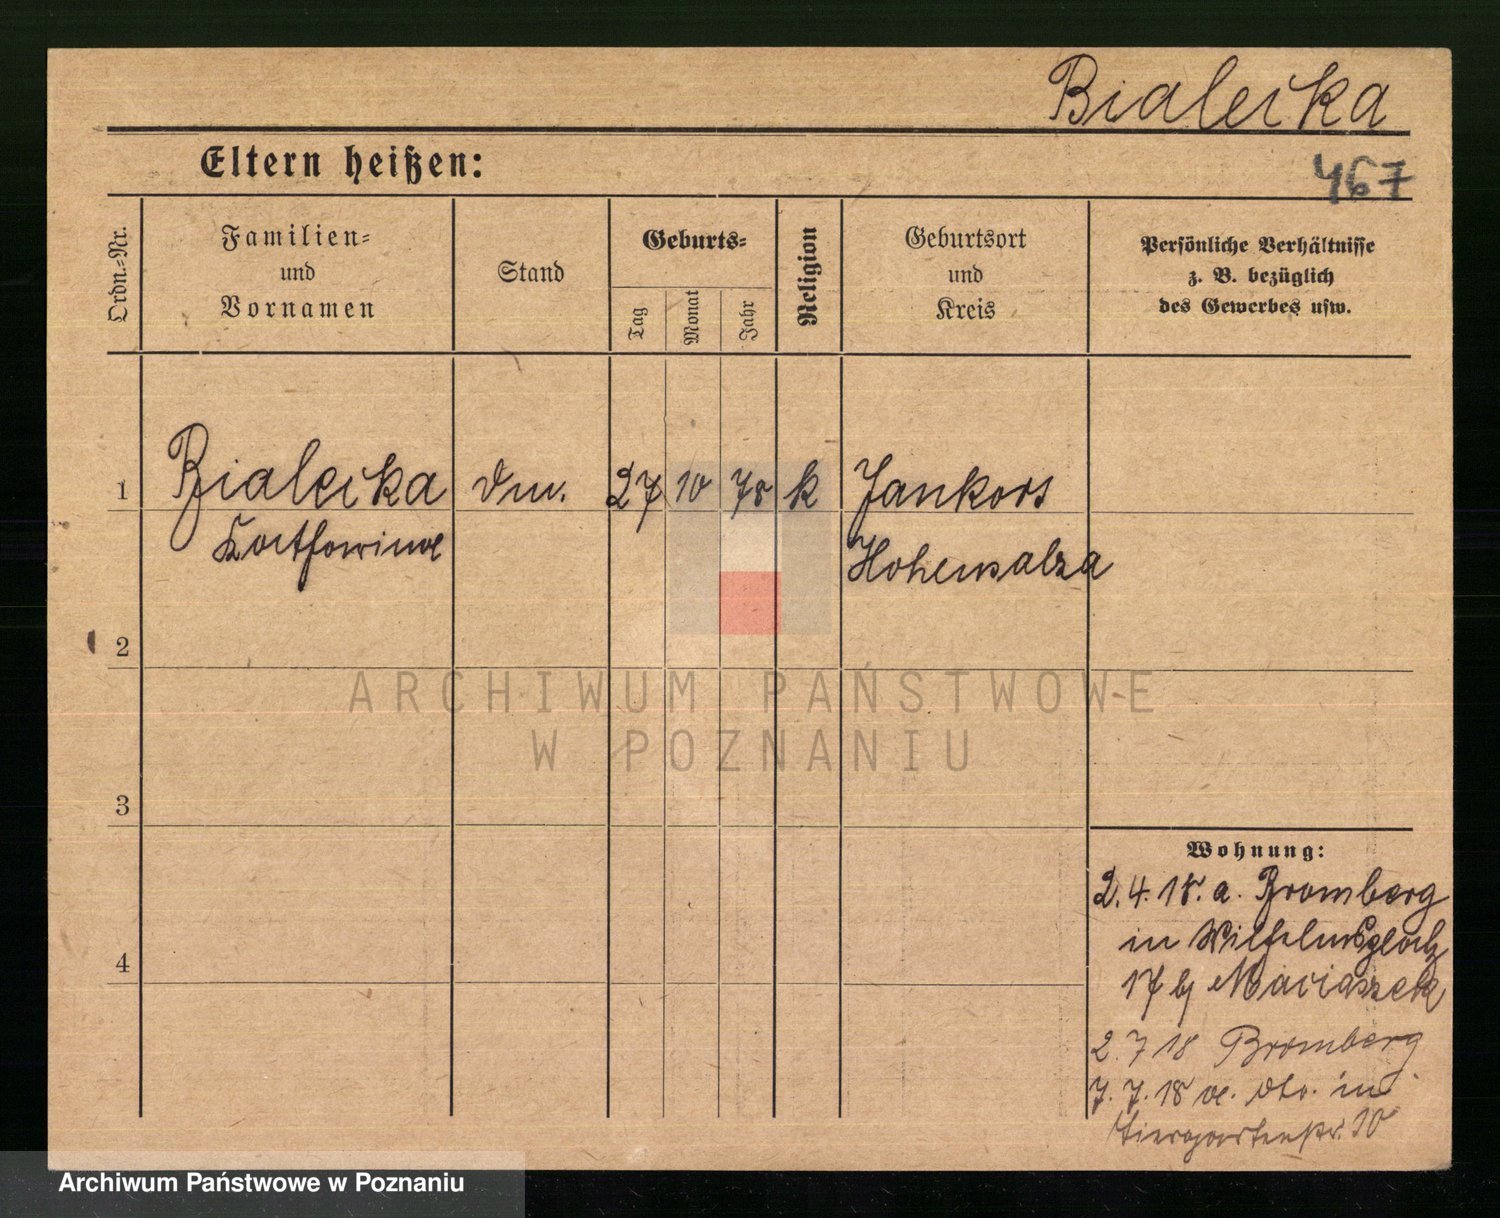 Bialecka
Eltern heißen:
467
Ordn.-Nr.
Familien-
und
Vornamen
Stand
Geburts-
Tag
Monat
Jahr
Religion
Geburtsort
und
Kreis
Persönliche Verhältnisse
z. B. bezüglich
des Gewerbes usw.
1 Bialecka 27 10 78 k Jankors
Katharina Hohensalza
2
ARCHIWUM PAŃSTWOWE
W POZNANIU
3
Wohnung:
2. 4. 18. a. Bromberg
in
4
17 bj Maciaszek
2. 7 18 Bromberg
7. 7. 18 v. dto. in
Tiergartenstr. 10
Archiwum Państwowe w Poznaniu